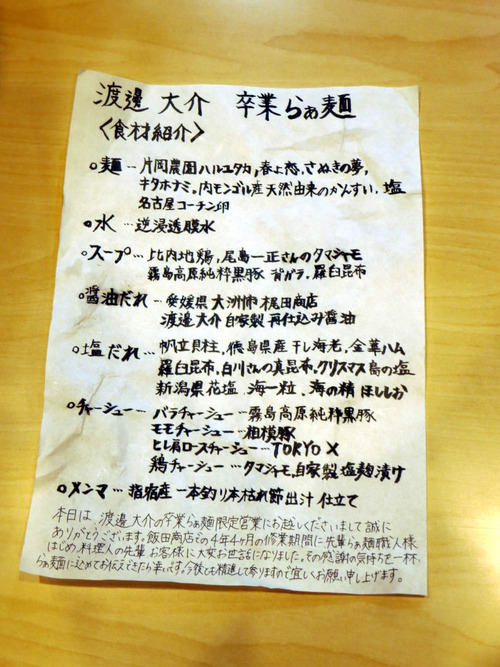 渡邊 大介 卒業らぁ麺
〈食材紹介〉
○麺… 片岡農園ハルユタカ, 春よ恋, さぬきの夢,
キタホナミ, 内モンゴル産天然由来のかんすい, 塩
名古屋コーチン卵
○水… 逆浸透膜水
○スープ… 比内地鶏, 尾島一正さんのタマシャモ
霧島高原純粋黒豚 背ガラ, 羅臼昆布
○醤油だれ… 愛媛県大洲市梶田商店
渡邊大介自家製再仕込み醤油
○塩だれ… 帆立貝柱, 徳島県産干し海老, 金華ハム
羅臼昆布, 白川さんの真昆布, クリスマス島の塩
新潟県花塩, 海一粒, 海の精 ほししお
○チャーシュー… バラチャーシュー… 霧島高原純粋黒豚
モモチャーシュー… 相模豚
ヒレ肩ロースチャーシュー… TOKYO X
鶏チャーシュー… タマシャモ, 自家製塩麹漬け
○メンマ… 指宿産一本釣り本枯れ節出汁仕立て
本日は、渡邊大介の卒業らぁ麺限定営業にお越しくださいまして誠に
ありがとうございます。飯田商店での4年4ヶ月の修業期間に先輩らぁ麺職人様
はじめ、料理人の先輩 お客様に大変お世話になりました。その感謝の気持ちを一杯の
らぁ麺に込めてお伝えできたら幸いです。今後とも精進して参りますので宜しくお願い申し上げます。